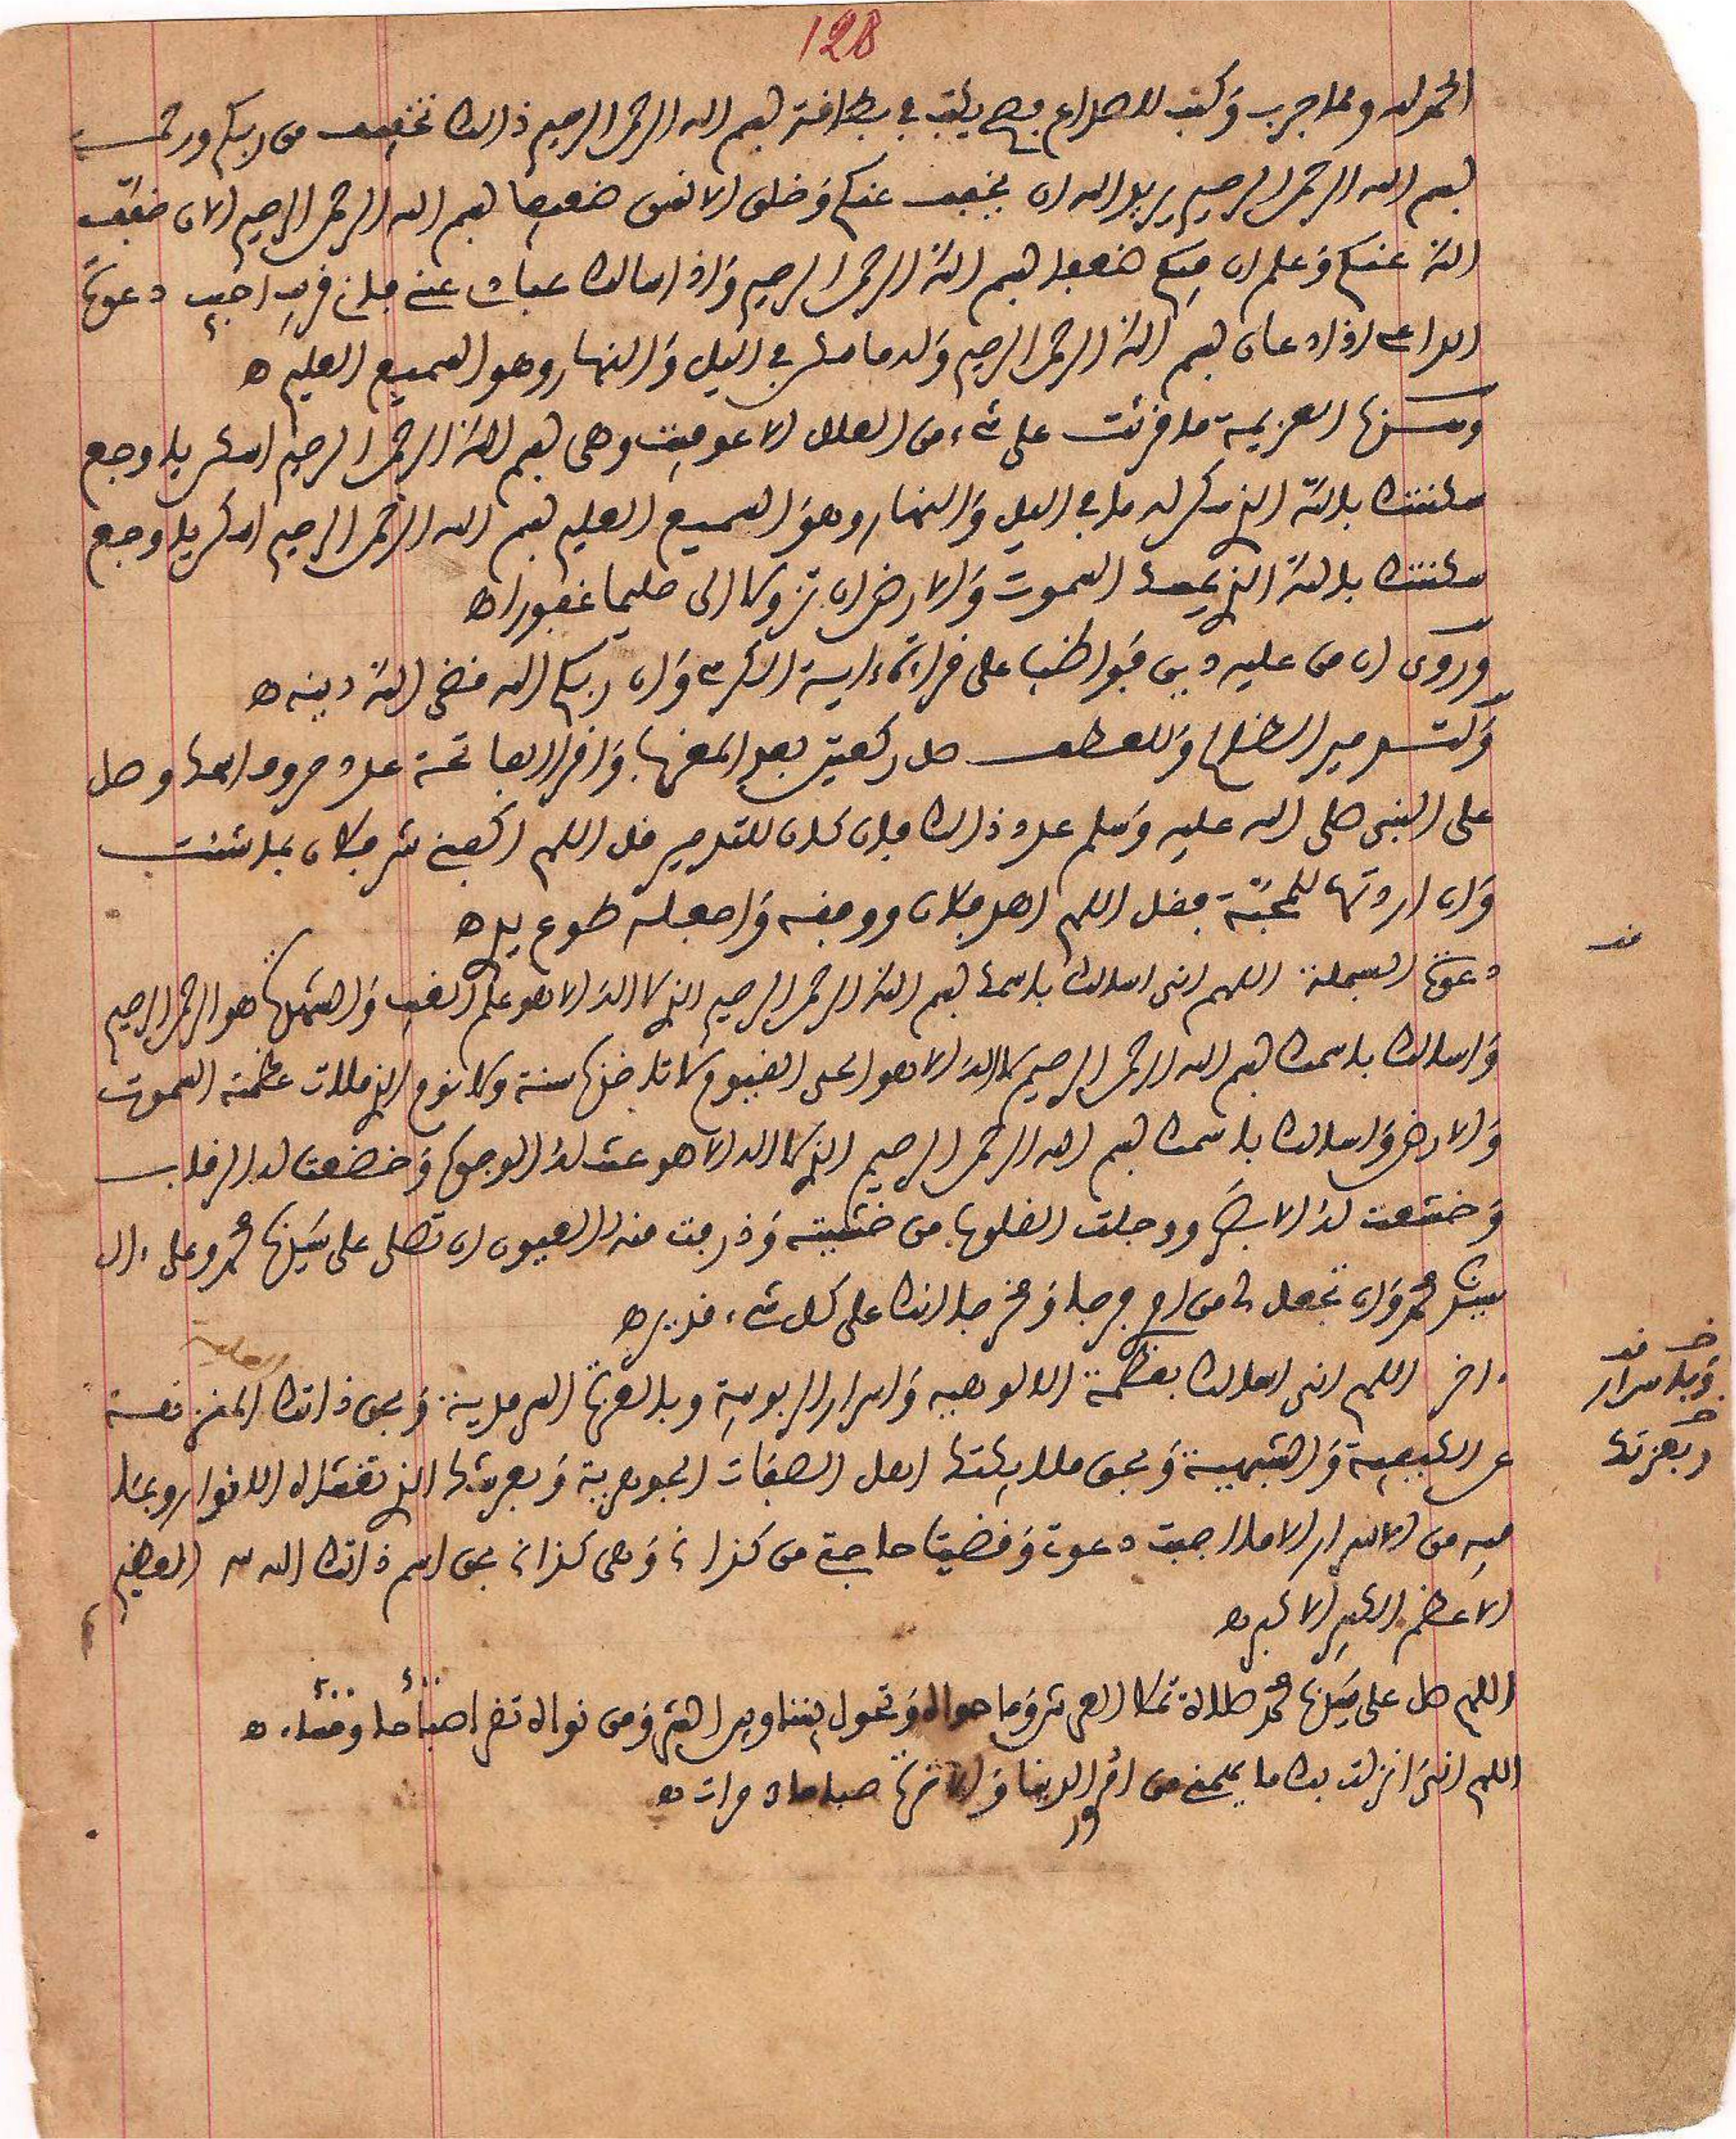 128
الحمد لله ومما جرب وكتب للصداع فصح يكتب في بطافة بسم الله الرحمن الرحيم ذالك تخفيف من ربكم ورحمة
بسم الله الرحمن الرحيم يريد الله ان يخفف عنكم وخلق الانسن ضعيفا بسم الله الرحمن الرحيم الان خفف
الله عنكم وعلم ان فيكم ضعفا بسم الله الرحمن الرحيم واذا سالك عباد عني فاني قريب اجيب دعوة
الداع اذا دعان بسم الله الرحمن الرحيم وله ما سكن في اليل والنهار وهو السميع العليم ه
وهذه العزيمة ما قرئت على شيء من العلل الا عوفيت وهى بسم الله الرحمن الرحيم اسكن يا وجع
سكنتك بالله الذي سكن له ما في اليل والنهار وهو السميع العليم بسم الله الرحمن الرحيم اسكن يا وجع
سكنتك بالله الذي يمسك السموت والارض ان تزولا الى حليما غفورا ه
وروى ان من عليه دين فواظب على قراءة ءاية الكرسي وان ربكم الله قضى الله دينه ه
ولتدمير الظالم وللعطف صل ركعتين بعد المغرب واقرا الفاتحة عدد حروفها وصل
على النبى صلى الله عليه وسلم عدد ذالك فان كان للتدمير قل اللهم اكفني شر فلان بما شئت
وان اردتها للمحبة فقل اللهم اهد فلان ووفقه واجعله طوع يدي ه
دعوة البسملة اللهم انى اسالك باسمك بسم الله الرحمن الرحيم الذي لا اله الا هو علم الغيب والشهادة هو الرحمن الرحيم
واسالك باسمك بسم الله الرحمن الرحيم لا اله الا هو الحى القيوم لا تاخذه سنة ولا نوم الذي ملات عظمته السموت
والارض واسالك باسمك بسم الله الرحمن الرحيم الذي لا اله الا هو عنت له الوجوه وخضعت له الرقاب
وخشعت له الابصار ووجلت القلوب من خشيته وذرفت منه العيون ان تصلى على سيدنا محمد وعلى ءال
سيدنا محمد وان تجعل لي من امري فرجا ومخرجا انك على كل شيء قدير ه
ءاخر اللهم انى اسالك بعظمة الالوهيه واسرار الربوبية وبالعزة السرمدية وبحق ذاتك المنزهة
عن الكيفية والشبهية وبحق ملايكتك اهل الصفات الجوهرية وبعرشك الذي تغشاه الانوار وبما
فيه من الاسرار الا ما اجبت دعوتي وقضيت حاجتي من كذا وهى كذا بحق اسم ذاتك الله العظيم
الاعظم الكبير الاكبر ه
اللهم صل على سيدنا محمد صلاة تملا العرش وما حواه وتحول بيننا وبين الشر ومن نواه تقرا صباحا ومساء ه
اللهم انى انزلت بك ما يهمني من امور الدنيا والاخرة صباحا مرات ه
قد
وباسرار
وبعزتك